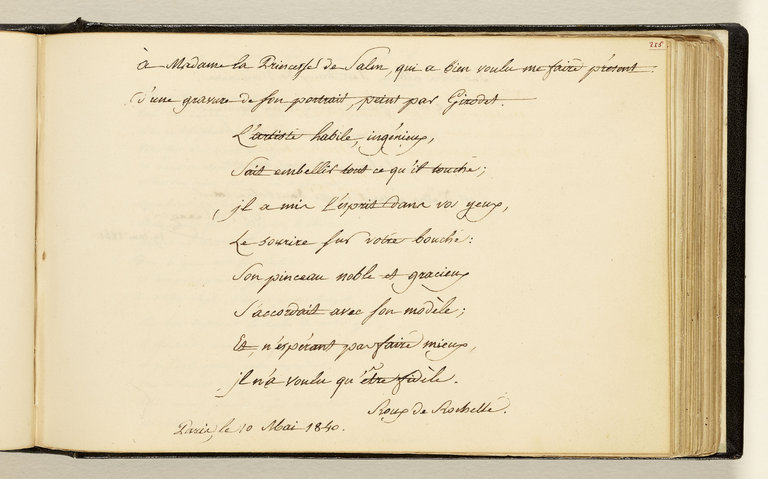 215
à Madame la Princesse de Salm, qui a bien voulu me faire présent
d'une gravure de son portrait, peint par Girodet.
L'artiste habile, ingénieux,
Sait embellir tout ce qu'il touche;
jl a mis l'esprit dans vos yeux,
Le sourire sur votre bouche:
Son pinceau noble et gracieux
S'accordait avec son modèle;
Et, n'espérant pas faire mieux,
jl n'a voulu qu'être fidèle.
Roux de Rochelle.
Paris, le 10 Mai 1840.